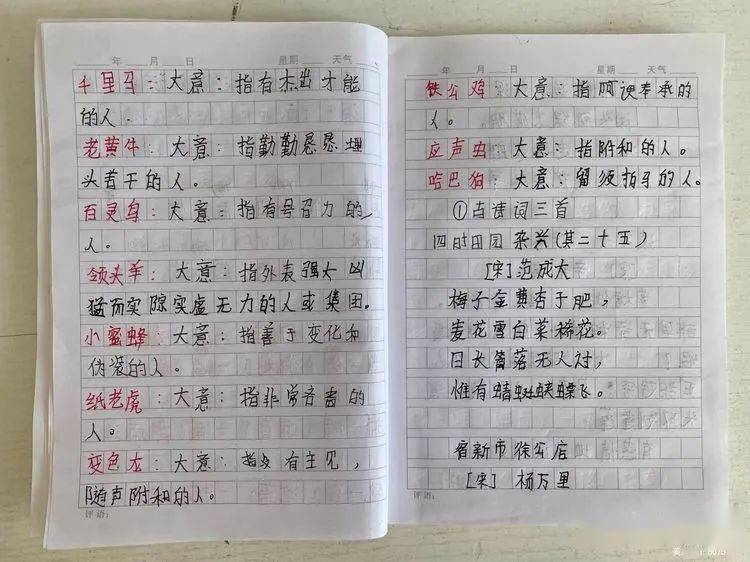 年 月 日 星期 天气
千里马：大意：指有杰出才能
的人。
老黄牛：大意：指勤勤恳恳埋
头苦干的人。
百灵鸟：大意：指有号召力的
人。
领头羊：大意：指外表强大凶
猛而实际实虚无力的人或集团。
小蜜蜂：大意：指善于变化和
伪装的人。
纸老虎：大意：指非常吝啬的
人。
变色龙：大意：指没有主见，
随声附和的人。
评语：
年 月 日 星期 天气
铁公鸡 大意：指阿谀奉承的
人。
应声虫：大意：指附和的人。
哈巴狗：大意：留须拍马的人。
①古诗词三首
四时田园杂兴(其二十五)
[宋]范成大
梅子金黄杏子肥，
麦花雪白菜稀花。
日长篱落无人过，
惟有蜻蜓蛱蝶飞。
宿新市徐公店
[宋] 杨万里
评语：